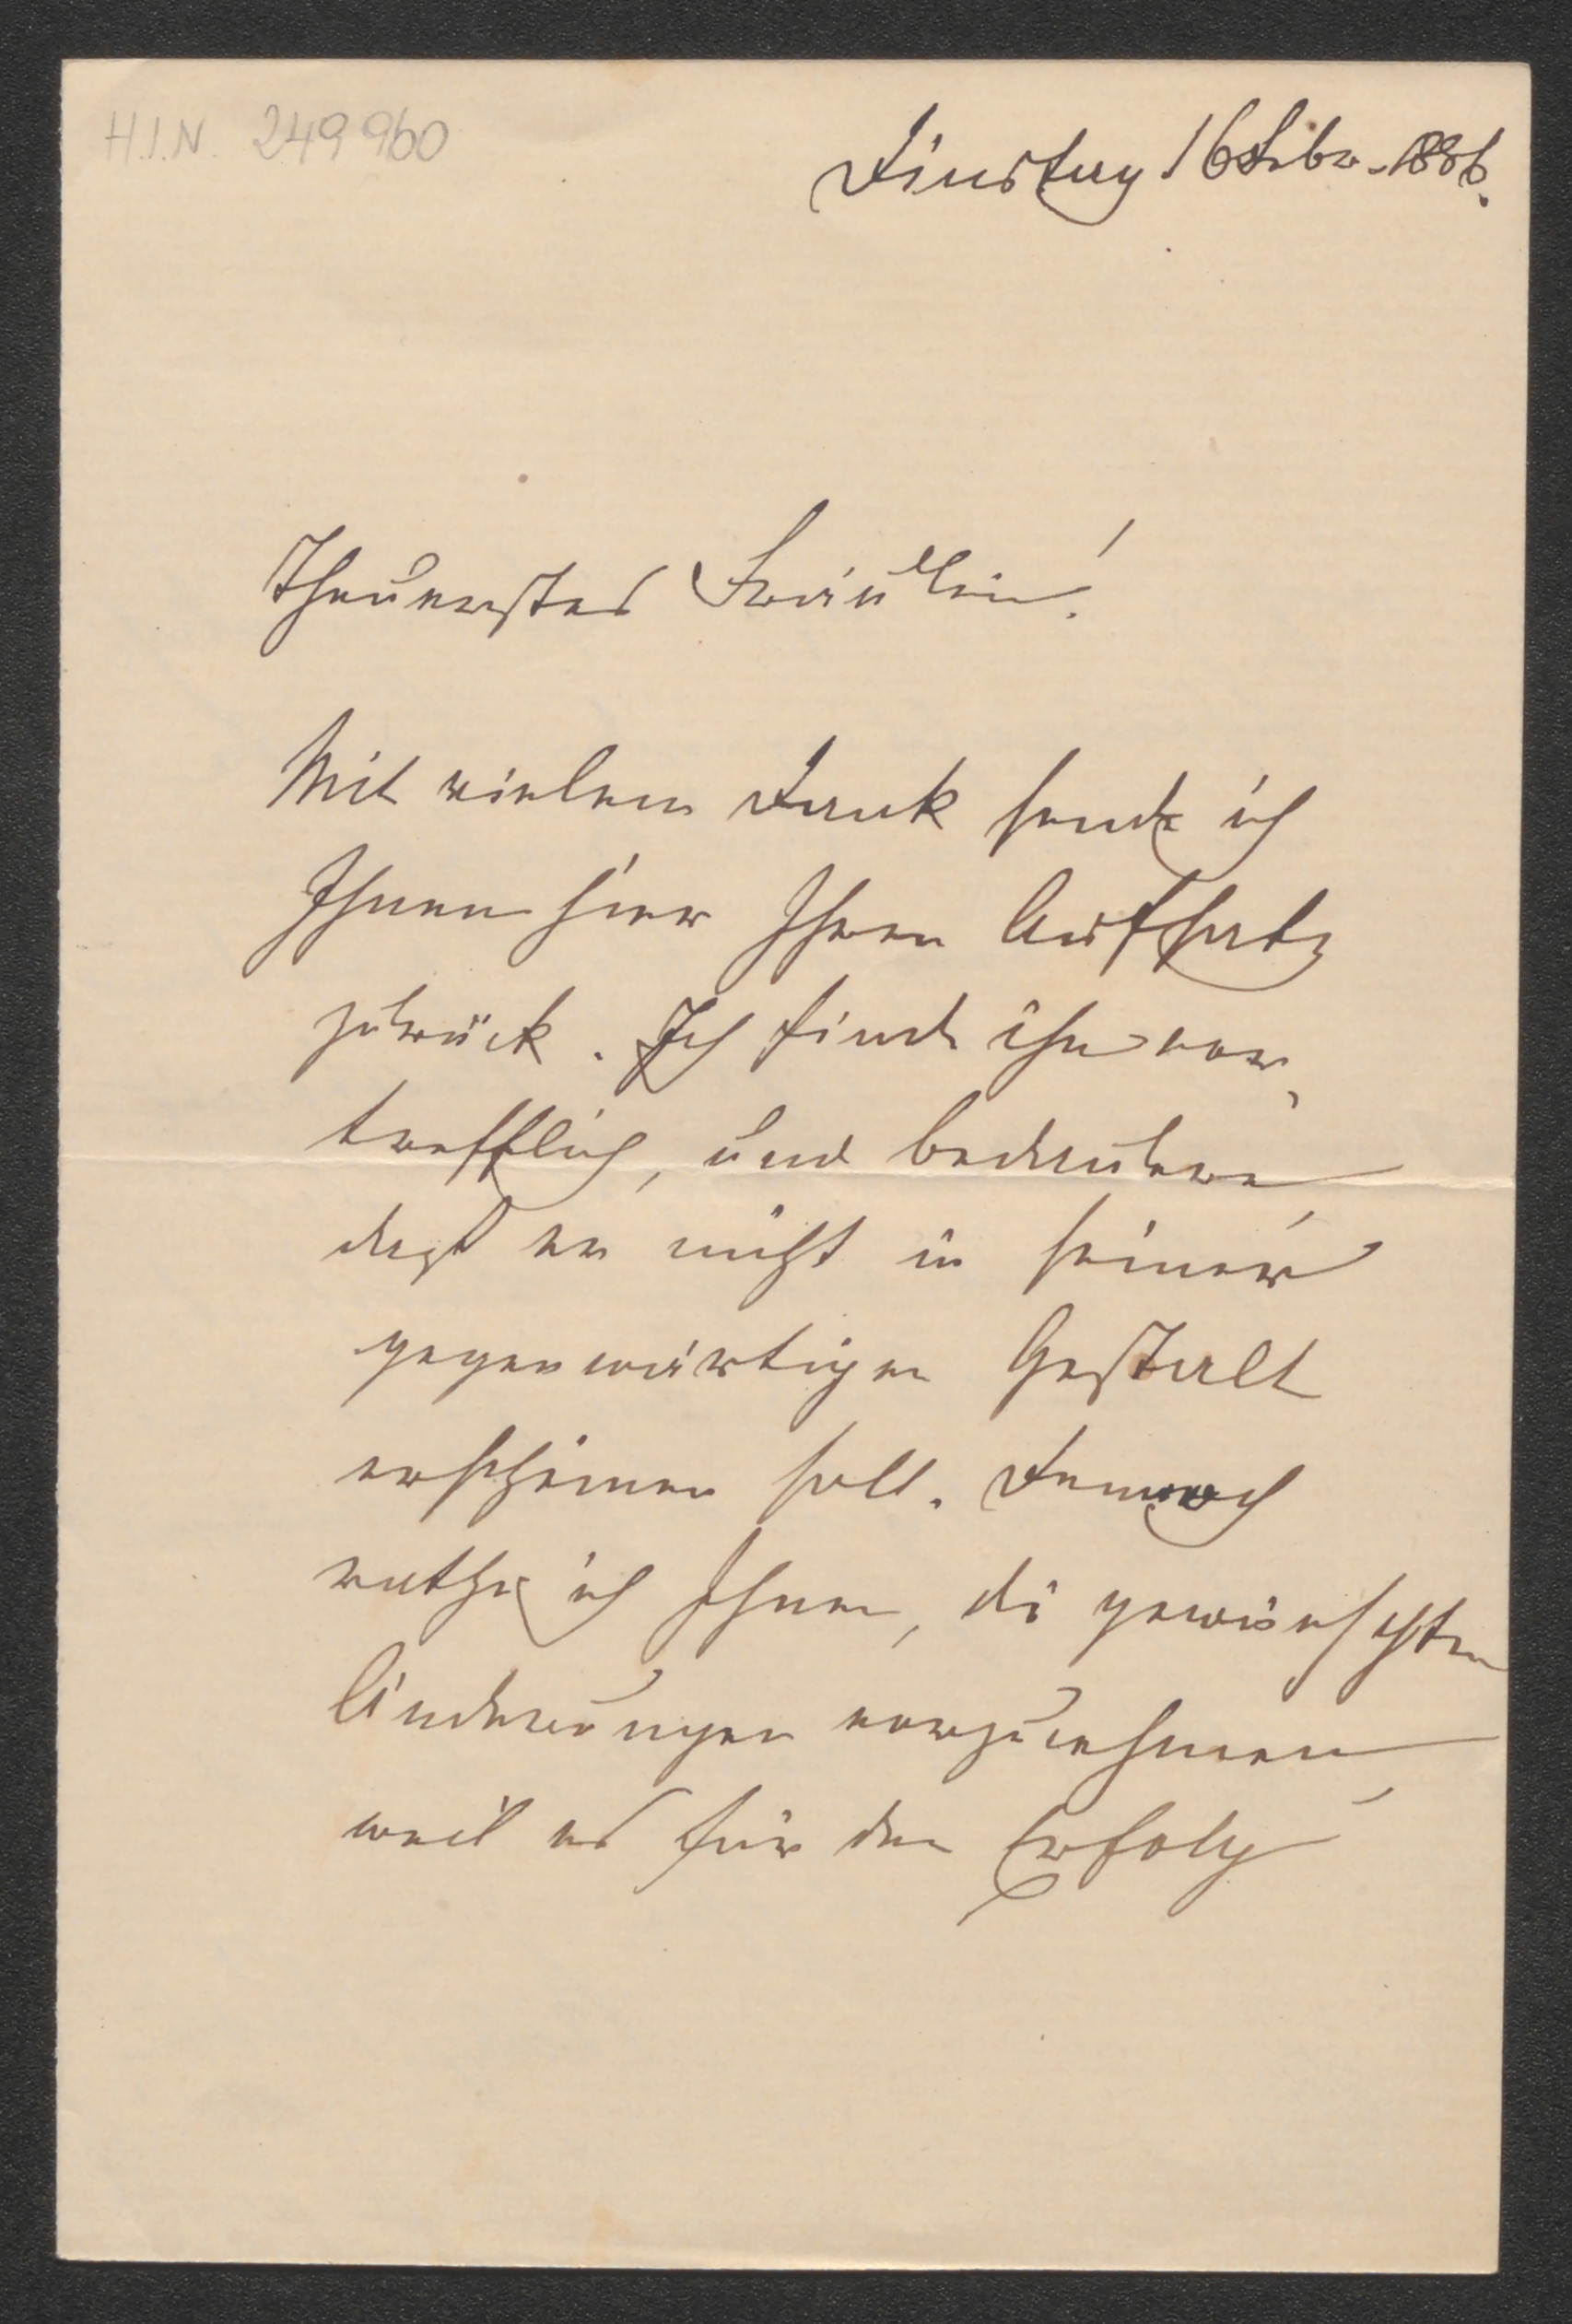 H.I.N. 249960
Dinstag 16 Febr. 1886.
Theuerstes Fräulein!
Mit vielem Dank sende ich
Ihnen hier Ihren Aufsatz
zurück. Ich finde ihn vor-
trefflich, und bedauere,
daß er nicht in seiner
gegenwärtigen Gestalt
erscheinen soll. Dennoch
rathe ich Ihnen, die gewünschten
Änderungen vorzunehmen,
weil es für den Erfolg